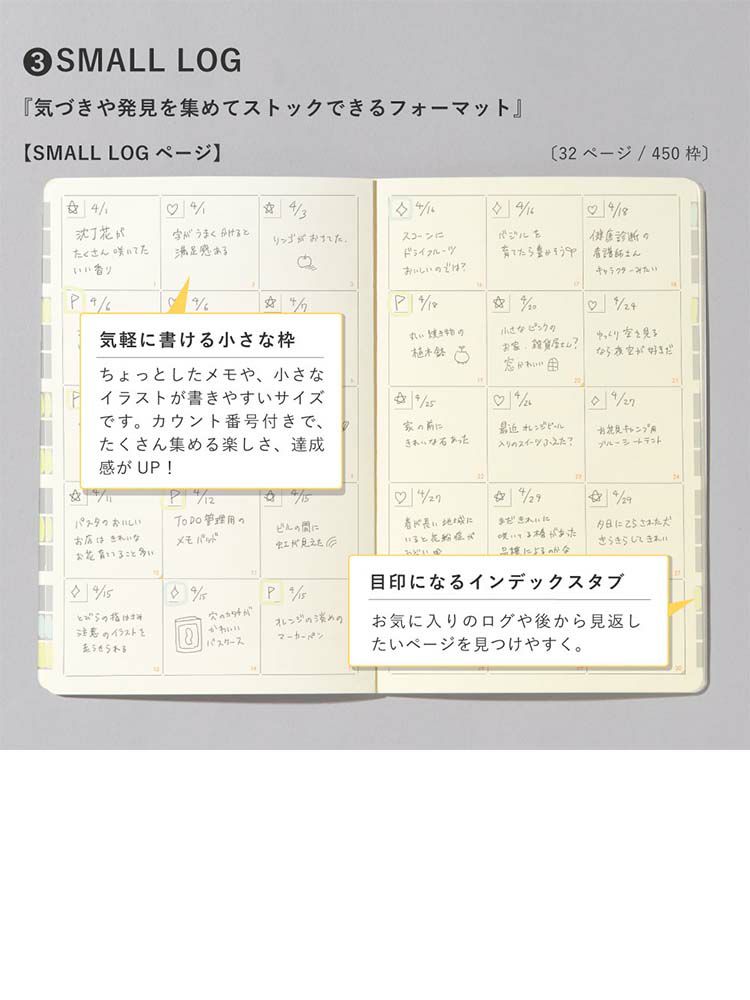 ❸SMALL LOG
『気づきや発見を集めてストックできるフォーマット』
【SMALL LOG ページ】
〔32 ページ / 450 枠〕
4/1
沈丁花が
たくさん咲いてた
いい香り
1
4/1
字がうまく分けると
満足感ある
2
4/3
リンゴがおちてた.
3
P 4/6
4/6
4/7
気軽に書ける小さな枠
ちょっとしたメモや、小さな
イラストが書きやすいサイズ
です。カウント番号付きで、
たくさん集める楽しさ、達成
感が UP！
4/11
パスタのおいしい
お店は きれいな
お花育ててること多い
10
P 4/12
TODO管理用の
メモパッド
11
4/15
ビルの間に
虹が見えた
4/15
注意のイラストを
13
4/15
穴のカタチが
かわいい
14
P 4/15
オレンジの淡めの
マーカーペン
4/16
スコーンに
ドライフルーツ
おいしいのでは?
16
4/16
バジルを
育てたら豊かそう
17
4/18
健康診断の
看護師さん
キャラクターみたい
18
P 4/18
丸い焼き物の
植木鉢
19
4/20
小さなピンクの
お家. 雑貨屋さん?
窓かわいい
20
4/24
ゆっくり空を見る
なら夜空が好きだ
21
4/25
家の前に
きれいな石あった
22
4/26
最近オレンジピール
入りのスイーツふえた?
23
4/27
お花見キャンプ用
ブルーシートテント
4/27
春が長い地域に
いると花粉症が
4/29
まだきれいに
咲いてる椿があった
品種によるのかな
4/29
夕日にてらされた犬
きらきらしてきれい
目印になるインデックスタブ
お気に入りのログや後から見返し
たいページを見つけやすく。
30